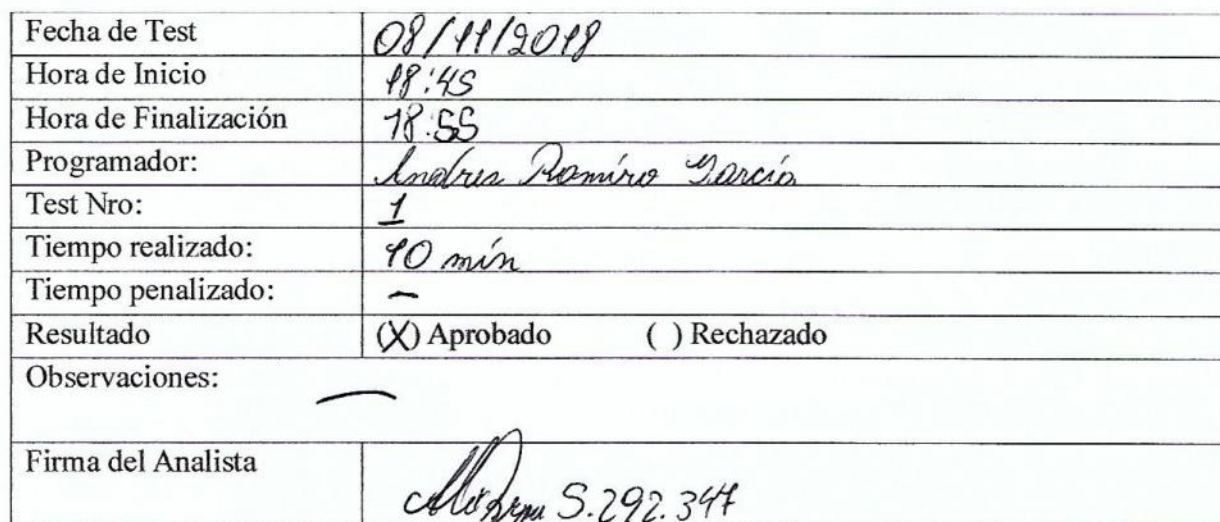 Fecha de Test 08/11/2018
Hora de Inicio 18:45
Hora de Finalización 18:55
Programador: Andres Ramíro García
Test Nro: 1
Tiempo realizado: 10 mín
Tiempo penalizado: -
Resultado (X) Aprobado ( ) Rechazado
Observaciones: —
Firma del Analista 5.292.347